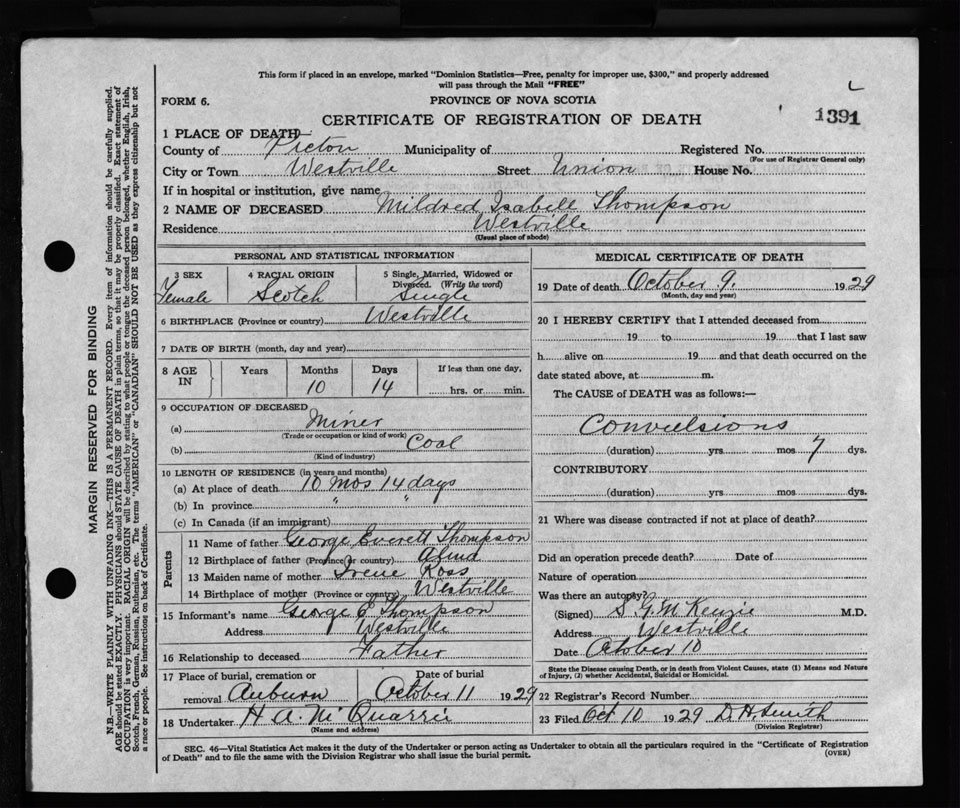 This form if placed in an envelope, marked "Dominion Statistics—Free, penalty for improper use, $300," and properly addressed
will pass through the Mail "FREE"
FORM 6.
PROVINCE OF NOVA SCOTIA
1391
CERTIFICATE OF REGISTRATION OF DEATH
1 PLACE OF DEATH—
County of Pictou Municipality of Registered No.
(For use of Registrar General only)
City or Town Westville Street Union House No.
If in hospital or institution, give name
2 NAME OF DECEASED Mildred Isabell Thompson
Residence Westville
(Usual place of abode)
PERSONAL AND STATISTICAL INFORMATION
3 SEX 4 RACIAL ORIGIN 5 Single, Married, Widowed or
Divorced. (Write the word)
Female Scotch Single
6 BIRTHPLACE (Province or country) Westville
7 DATE OF BIRTH (month, day and year)
8 AGE IN Years Months Days If less than one day,
10 14 hrs. or min.
9 OCCUPATION OF DECEASED
(a) Miner
(Trade or occupation or kind of work)
(b) Coal
(Kind of industry)
10 LENGTH OF RESIDENCE (in years and months)
(a) At place of death 10 mos 14 days
(b) In province " "
(c) In Canada (if an immigrant)
Parents
11 Name of father George Everett Thompson
12 Birthplace of father (Province or country)
13 Maiden name of mother Irene Ross
14 Birthplace of mother (Province or country) Westville
15 Informant's name George E Thompson
Address Westville
16 Relationship to deceased Father
17 Place of burial, cremation or Date of burial
removal Auburn October 11 1929
18 Undertaker H A. McQuarrie
(Name and address)
MEDICAL CERTIFICATE OF DEATH
19 Date of death October 9. 1929
(Month, day and year)
20 I HEREBY CERTIFY that I attended deceased from
19 to 19 that I last saw
h alive on 19 and that death occurred on the
date stated above, at m.
The CAUSE of DEATH was as follows:—
Convulsions
(duration) yrs. mos 7 dys.
CONTRIBUTORY
(duration) yrs. mos. dys.
21 Where was disease contracted if not at place of death?
Did an operation precede death? Date of
Nature of operation
Was there an autopsy?
(Signed) S G McKenzie M.D.
Address Westville
Date October 10
State the Disease causing Death, or in death from Violent Causes, state (1) Means and Nature
of Injury, (2) whether Accidental, Suicidal or Homicidal.
22 Registrar's Record Number
23 Filed Oct 10 1929 D. H. Smith
(Division Registrar)
SEC. 46—Vital Statistics Act makes it the duty of the Undertaker or person acting as Undertaker to obtain all the particulars required in the "Certificate of Registration
of Death" and to file the same with the Division Registrar who shall issue the burial permit.
(OVER)
MARGIN RESERVED FOR BINDING
N.B.—WRITE PLAINLY WITH UNFADING INK—THIS IS A PERMANENT RECORD. Every item of information should be carefully supplied.
AGE should be stated EXACTLY. PHYSICIANS should STATE CAUSE OF DEATH in plain terms, so that it may be properly classified. Exact statement of
OCCUPATION is very important. RACIAL ORIGIN will be described by stating to what people or tongue the deceased person belonged, whether English, Irish,
Scotch, French, German, Russian, Ruthenian, etc. The terms "AMERICAN" or "CANADIAN" SHOULD NOT BE USED as they express citizenship but not
a race or people. See instructions on back of Certificate.